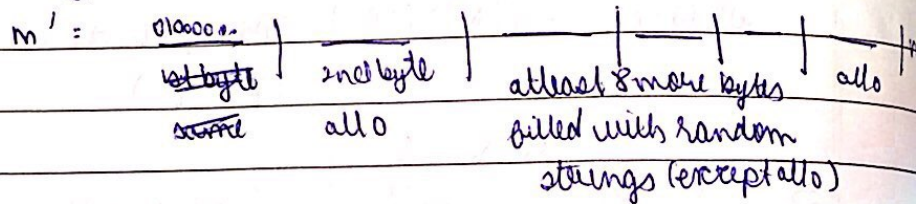 m' : 010000.. | | | | | allo | m
1st byte 2nd byte atleast 8 more bytes
same all 0 filled with random
strings (except all 0)